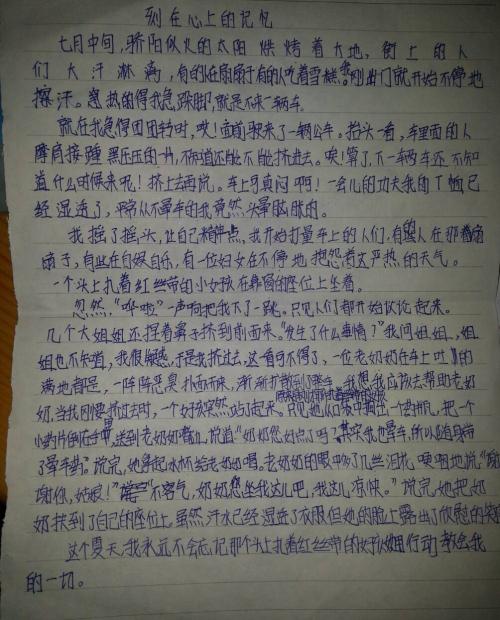 刻在心上的记忆
七月中间，骄阳似火的太阳烘烤着大地，街上的人
们大汗淋漓，有的在扇扇子有的吃着雪糕。我刚出门就开始不停地
擦汗。炎热的得我急跺脚，就是不来一辆车。
就在我急得团团转时，唉！面前驶来了一辆公车。抬头一看，车里面的人
摩肩接踵黑压压的一片，不知道还能不能挤进去。唉！算了，下一辆车还不知
道什么时候来呢！挤上去再说。车上可真闷啊！一会儿的功夫我的T恤已
经湿透了，平常从不晕车的我竟然头晕脑胀的。
我摇了摇头，让自己精神点，我开始打量车上的人们，有的人在那着扇
扇子，有些在自娱自乐，有一位妇女在不停地抱怨着这严热的天气。
一个头上扎着红丝带的小女孩在靠窗的座位上坐着。
忽然，“哗啦”一声响把我下一跳。只见人们都开始议论起来。
几个大姐姐还捏着鼻子挤到前面来。“发生了什么事情？”我问姐姐，姐
姐也不知道，我很疑惑，于是我挤过去，这一看可不得了，一位老奶奶在车上吐的
满地都是，一阵阵恶臭扑面而来，渐渐扩散到了整车。我想我应该去帮助老奶
奶，当我刚要挤过去时，一个女孩突然站了起来。只见她从口袋中掏出一个药瓶，把一个
小药片倒在手里，送到老奶奶嘴边，说道：“奶奶您好点了吗？其实我也晕车，所以随身带
了晕车药。”说完，她拿起水杯给老奶奶喝。老奶奶的眼中多了几丝泪花哽咽地说“谢
谢你，姑娘！”“不客气，奶奶您坐我这儿吧，我这儿凉快。”说完，她把奶
奶扶到了自己的座位上。虽然，汗水已经湿透了衣服但她的脸上露出了欣慰的笑
这个夏天，我永远不会忘记那个头上扎着红丝带的女孩她用行动教会我
的一切。